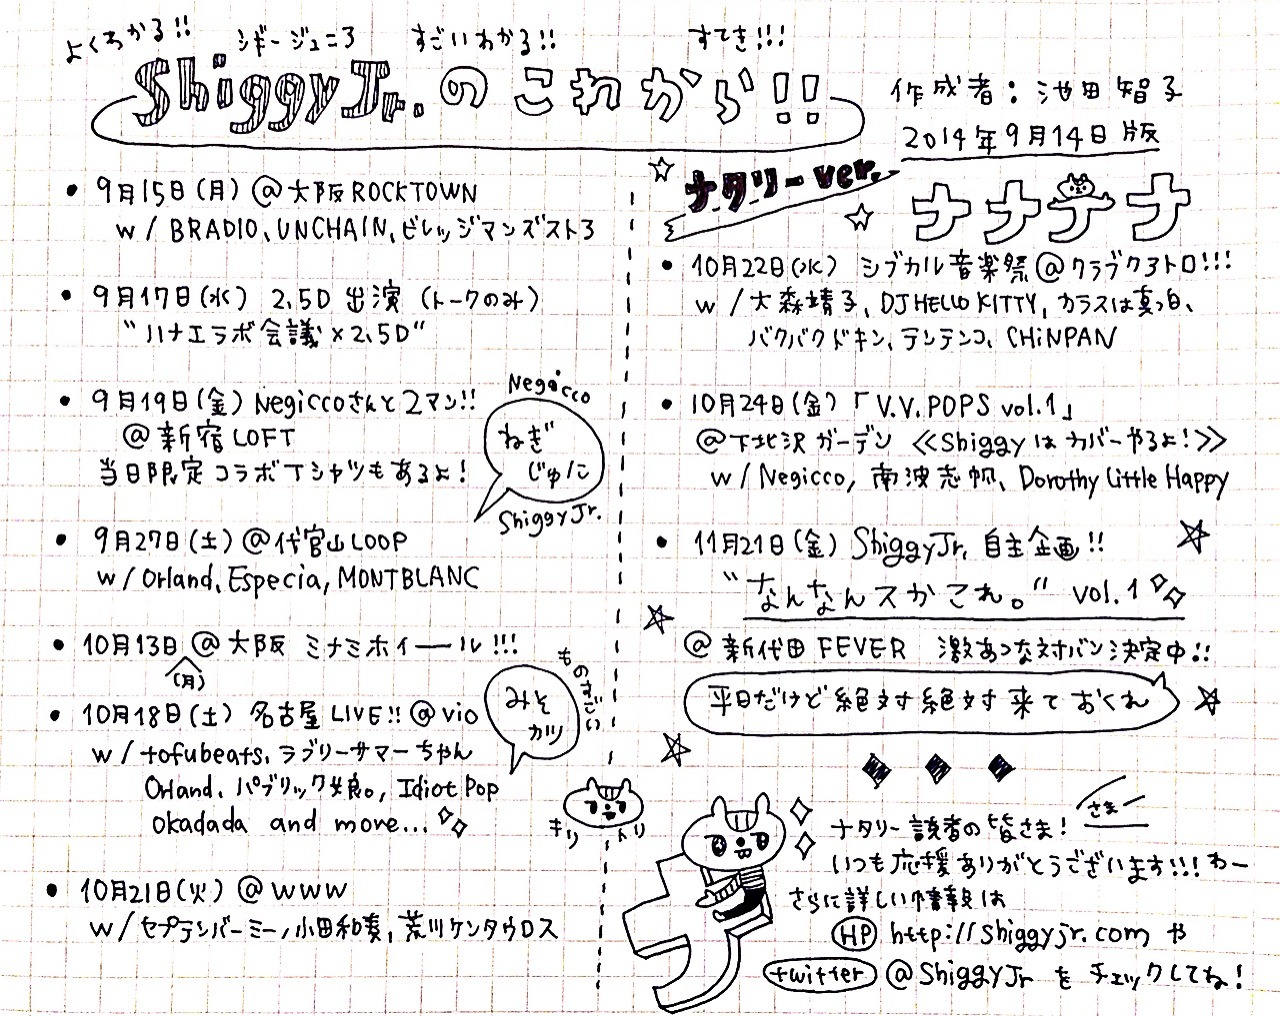 よくわかる!! シギージュニア すごいわかる!! すてき!!!
Shiggy Jr. の これから!!
作成者：池田智子
2014年9月14日版
ナタリーver.
ナナナナ
• 9月15日(月) @大阪ROCKTOWN
w/ BRADIO、UNCHAIN、ビレッジマンズストア
• 9月17日(水) 2.5D 出演 (トークのみ)
"ハナエラボ会議×2.5D"
• 9月19日(金) Negiccoさんと2マン!!
@新宿LOFT
当日限定コラボTシャツもあるよ!
Negicco
ねぎ
じゅに
Shiggy Jr.
• 9月27日(土) @代官山LOOP
w/ Orland、Especia、MONTBLANC
• 10月13日 @大阪 ミナミホイール!!!
(月)
• 10月18日(土) 名古屋 LIVE!! @vio
w/ tofubeats、ラブリーサマーちゃん
Orland、パブリック娘。、Idiot Pop
okadada and more...
ものすごい
みそ
カツ
キリ トリ
• 10月21日(火) @WWW
w/ セプテンバーミー、小田和奏、荒川ケンタウロス
• 10月22日(水) シブカル音楽祭@クラブクアトロ!!!
w/ 大森靖子、DJ HELLO KITTY、カラスは真っ白、
バクバクドキン、テンテンコ、CHiNPAN
• 10月24日(金) 「V.V.POPS vol.1」
@下北沢ガーデン ≪Shiggyはカバーやるよ!≫
w/ Negicco、南波志帆、Dorothy Little Happy
• 11月21日(金) Shiggy Jr. 自主企画!!
"なんなんスかこれ。" vol.1
@新代田FEVER 激あつな対バン決定中!!
平日だけど絶対絶対来ておくれ
ナタリー読者の皆さま! さま
いつも応援ありがとうございます!!! わー
さらに詳しい情報は
HP http://shiggyjr.com や
twitter @ShiggyJr をチェックしてね!
ナ